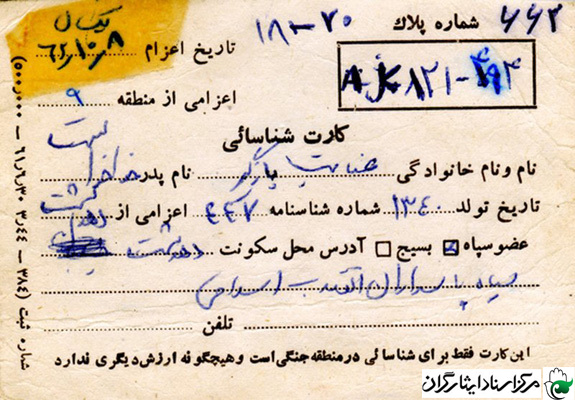 یکسال
۶۲/۱۰/۸
شماره پلاک ۶۶۳
تاریخ اعزام ۲۰-۱۸
AJK ۸۲۱-۴۹۴
اعزامی از منطقه ۹
کارت شناسائی
نام و نام خانوادگی عنایت نام پدر
تاریخ تولد ۱۳۴۰ شماره شناسنامه ۴۴۷ اعزامی از
عضو سپاه بسیج آدرس محل سکونت
سپاه پاسداران انقلاب اسلامی
تلفن
این کارت فقط برای شناسائی در منطقه جنگی است و هیچگونه ارزش دیگری ندارد
شماره ثبت (۳۸۴ — ۳۰۴۴ — ۶۱/۶/۳۰ — ۵۰۰/۰۰۰)
مرکز اسناد ایثارگران